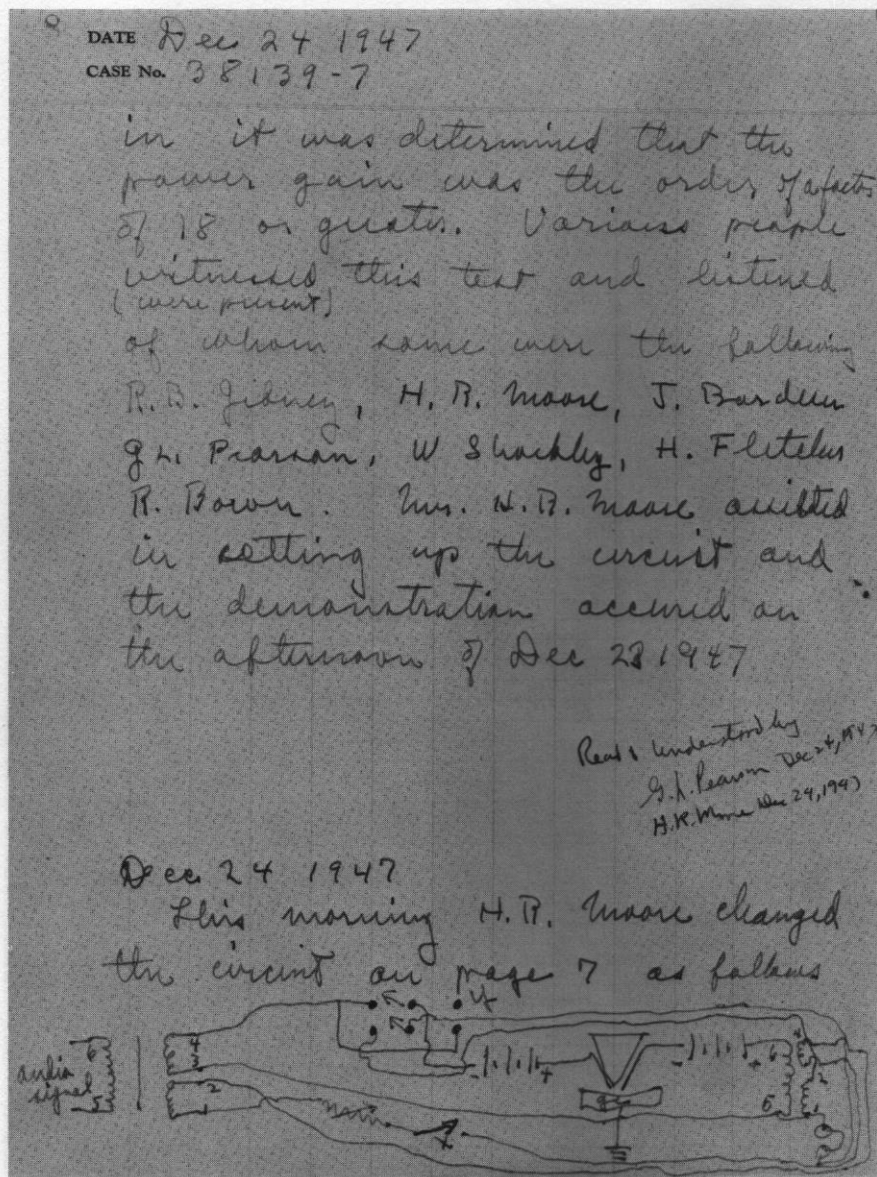 8
DATE Dec 24 1947
CASE No. 38139-7
in it was determined that the
power gain was the order of a factor
of 18 or greater. Various people
witnessed this test and listened
(were present)
of whom some were the following
R.B. Gibney, H. R. Moore, J. Bardeen
G L. Pearson, W Shockley, H. Fletcher
R. Bown. Mr. H.R. Moore assisted
in setting up the circuit and
the demonstration occured on
the afternoon of Dec 23 1947
Read & Understood by
G.L. Pearson Dec 24, 1947
H.R. Moore Dec 24, 1947
Dec 24 1947
This morning H. R. Moore changed
the circuit on page 7 as follows
audio
signal
6
5
4
3
2
1
- +
g
- +
6
5